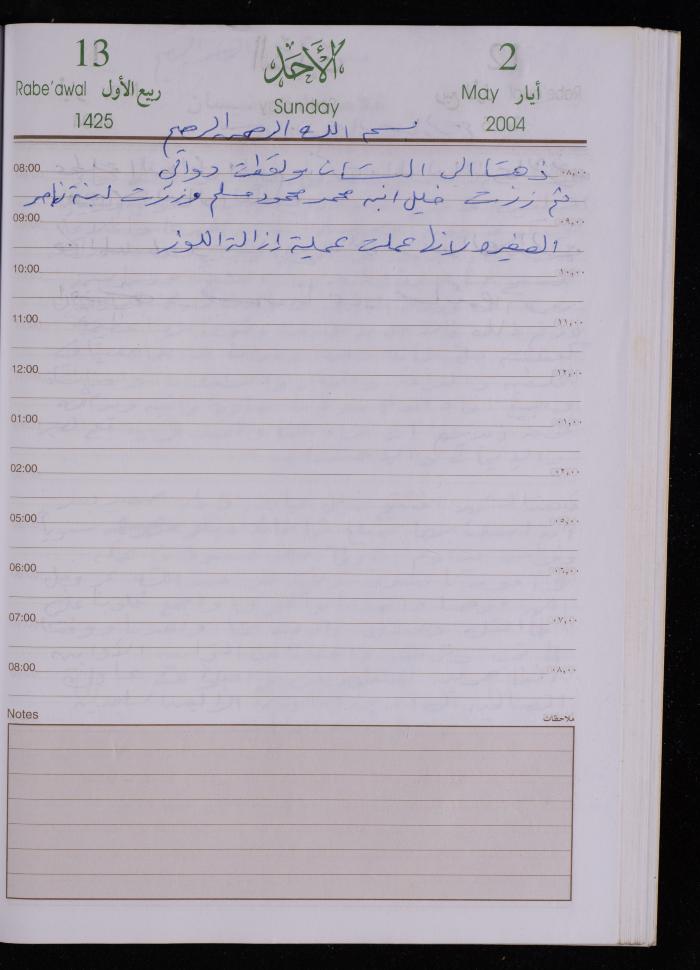 13 الأحد 2
Rabe'awal ربيع الأول Sunday May أيار
1425 2004
بسم الله الرحمن الرحيم
08:00 ذهبنا الى البستان ولقطت دوالي ٠٨,٠٠
ثم زرت خليل ابنه محمد محمود مسلم وزرت ابنة ناصر
09:00 ٠٩,٠٠
الصغيره لانها عملت عملية إزالة اللوز
10:00 ١٠,٠٠
11:00 ١١,٠٠
12:00 ١٢,٠٠
01:00 ٠١,٠٠
02:00 ٠٢,٠٠
05:00 ٠٥,٠٠
06:00 ٠٦,٠٠
07:00 ٠٧,٠٠
08:00 ٠٨,٠٠
Notes ملاحظات